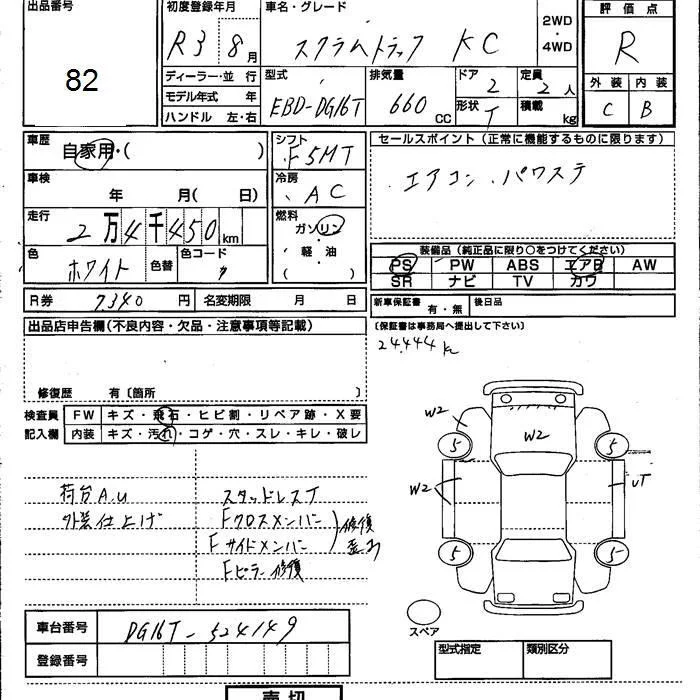 出品番号 82
初度登録年月 R3 8月
車名・グレード スクラムトラック KC
2WD・4WD
評価点 R
外装 C 内装 B
ディーラー・並行
モデル年式 年
ハンドル 左・右
型式 EBD-DG16T
排気量 660 CC
ドア 2 形状 T
定員 2人
積載 kg
車歴 自家用・( )
シフト F5MT
車検 年 月(日)
冷房 AC
走行 2万4千450km
燃料 ガソリン・軽油( )
色 ホワイト 色替 色コード
R券 7340円 名変期限 月 日
セールスポイント(正常に機能するものに限ります)
エアコン、パワステ
装備品(純正品に限り○をつけてください)
PS PW ABS エアB AW
SR ナビ TV カワ
新車保証書 有・無 後日品
(保証書は事務局へ提出して下さい)
出品店申告欄(不良内容・欠品・注意事項等記載)
24,444 km
修復歴 有〔箇所 〕
検査員記入欄
FW キズ・飛石・ヒビ割・リペア跡・X要
内装 キズ・汚れ・コゲ・穴・スレ・キレ・破レ
荷台A.U
外装仕上げ
スタッドレスT
Fクロスメンバー
Fサイドメンバー
修復
Fピラー修復
W2 W2 W2 UT
5 5 5 5
スペア
車台番号 DG16T-524149
登録番号
型式指定 類別区分
売切